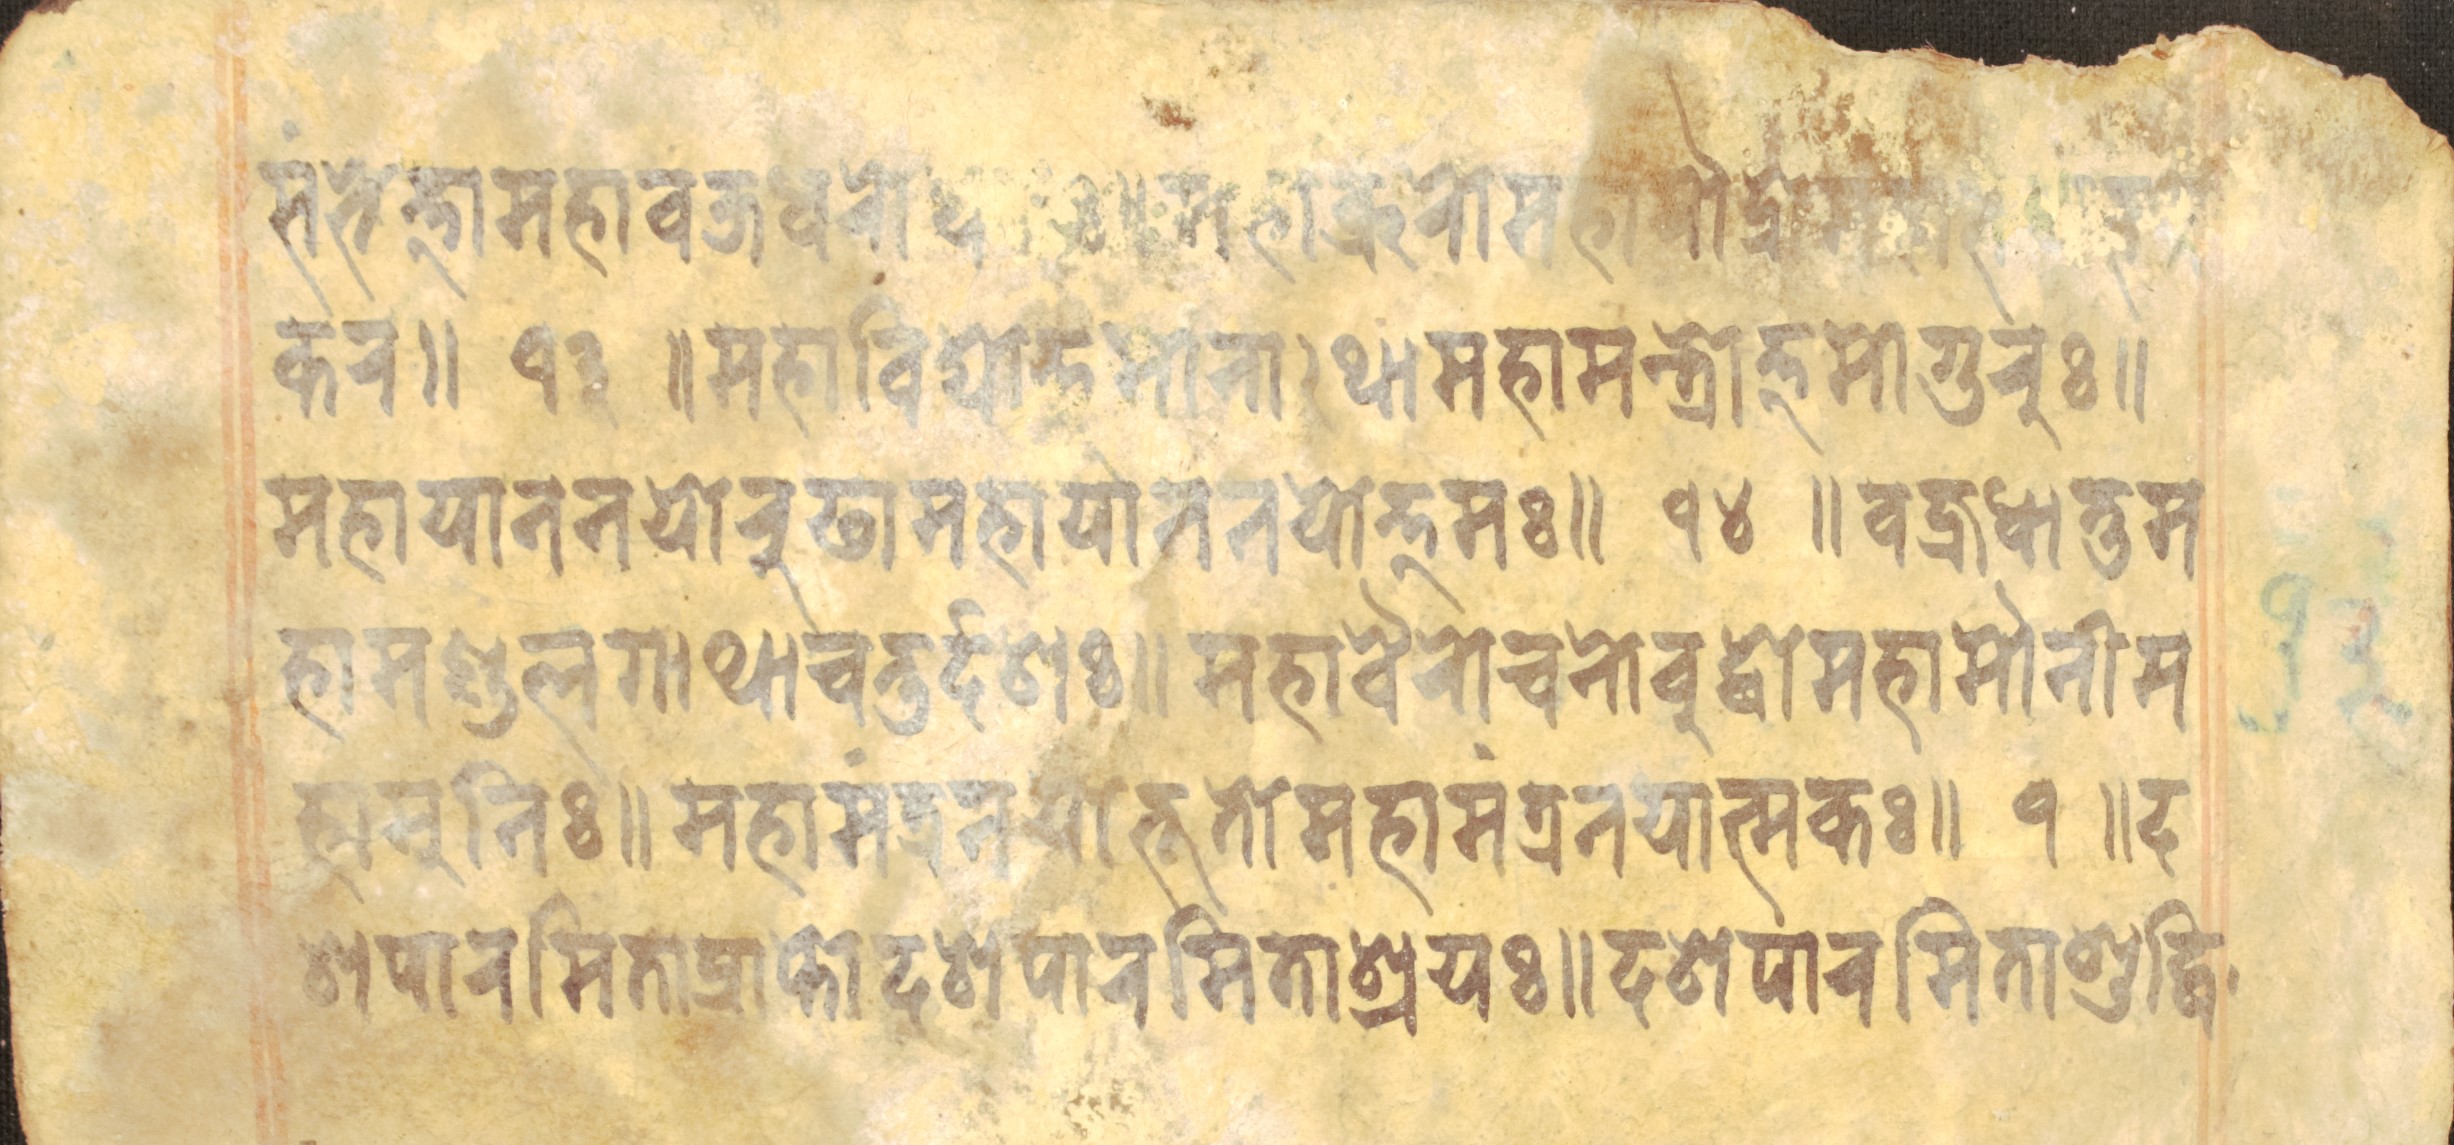 संभेत्तामहावज्रधरोघ ॥महाक्रूरोमहारौद्रोमहा
कर॥ १३ ॥महाविद्योत्तमोनाथामहामन्त्रोत्तमोगुरुः॥
महायाननयोरुढामहायाननयोत्तमः॥ १४ ॥वज्रधातुम
हामण्डलगाथाचतुर्दशः॥महावैरोचनोबुद्धोमहामौनीम
हामुनिः॥महामंत्रनयोद्भूतोमहामंत्रनयात्मकः॥ १ ॥द
शपारमिताप्राप्तोदशपारमिताश्रयः॥दशपारमिताशुद्धि
१३